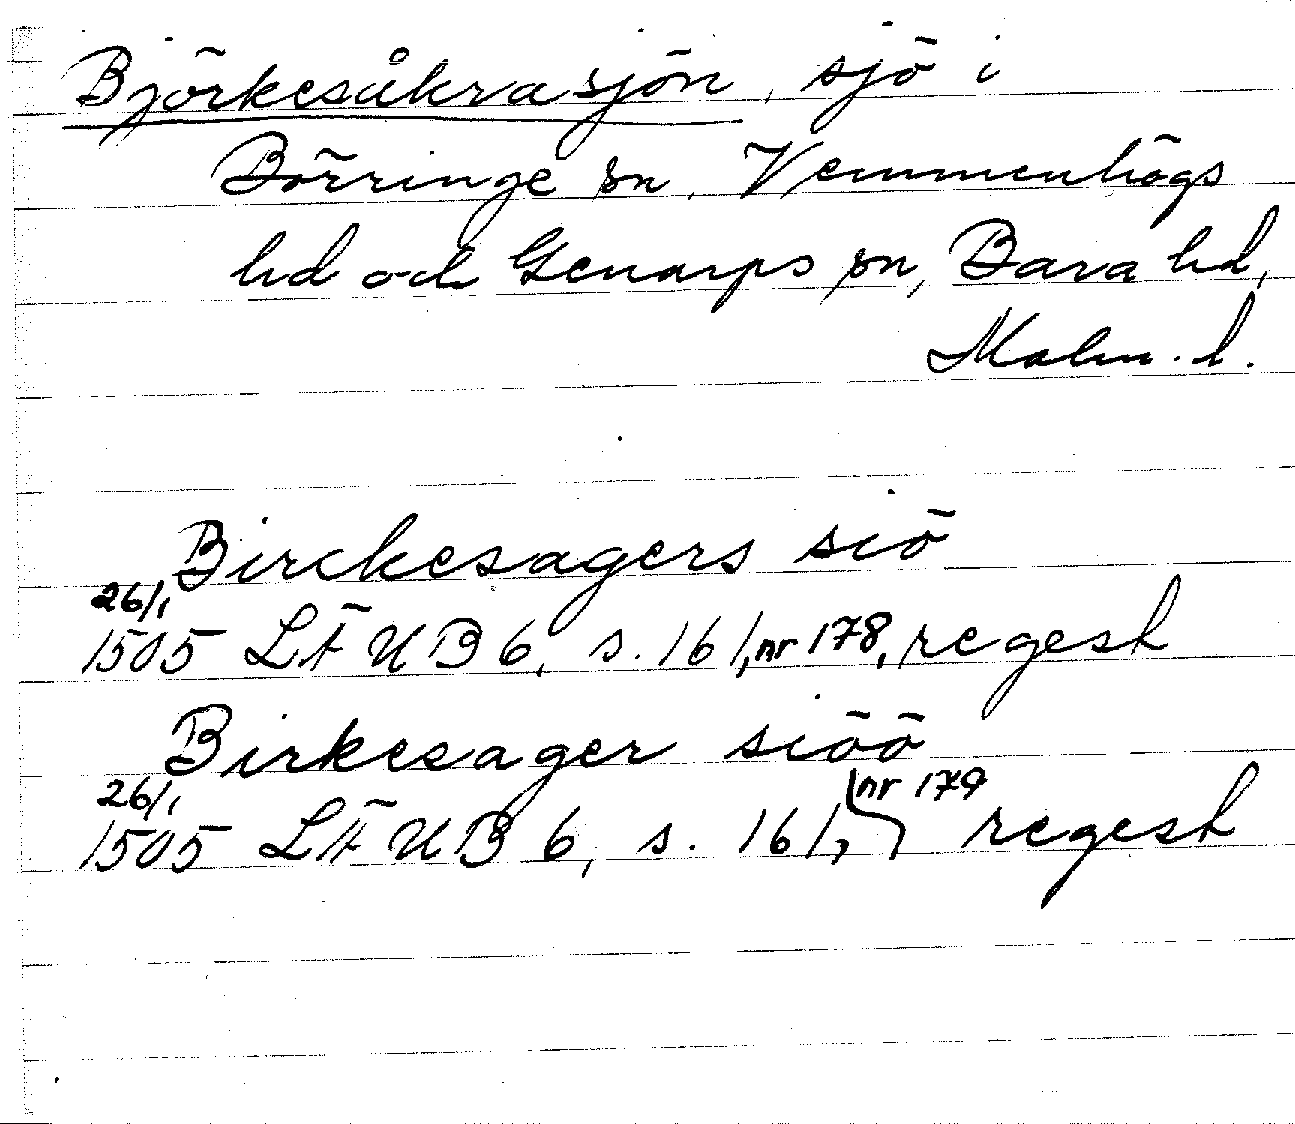 Björkesåkrasjön, sjö i
Börringe sn, Vemmenhögs
hd och Genarps sn, Bara hd,
Malm. l.
Birckesagers siö
26/1
1505 LÄUB 6, s. 161, nr 178, regest
Birkesager siöö
26/1 nr 179
1505 LÄUB 6, s. 161, regest